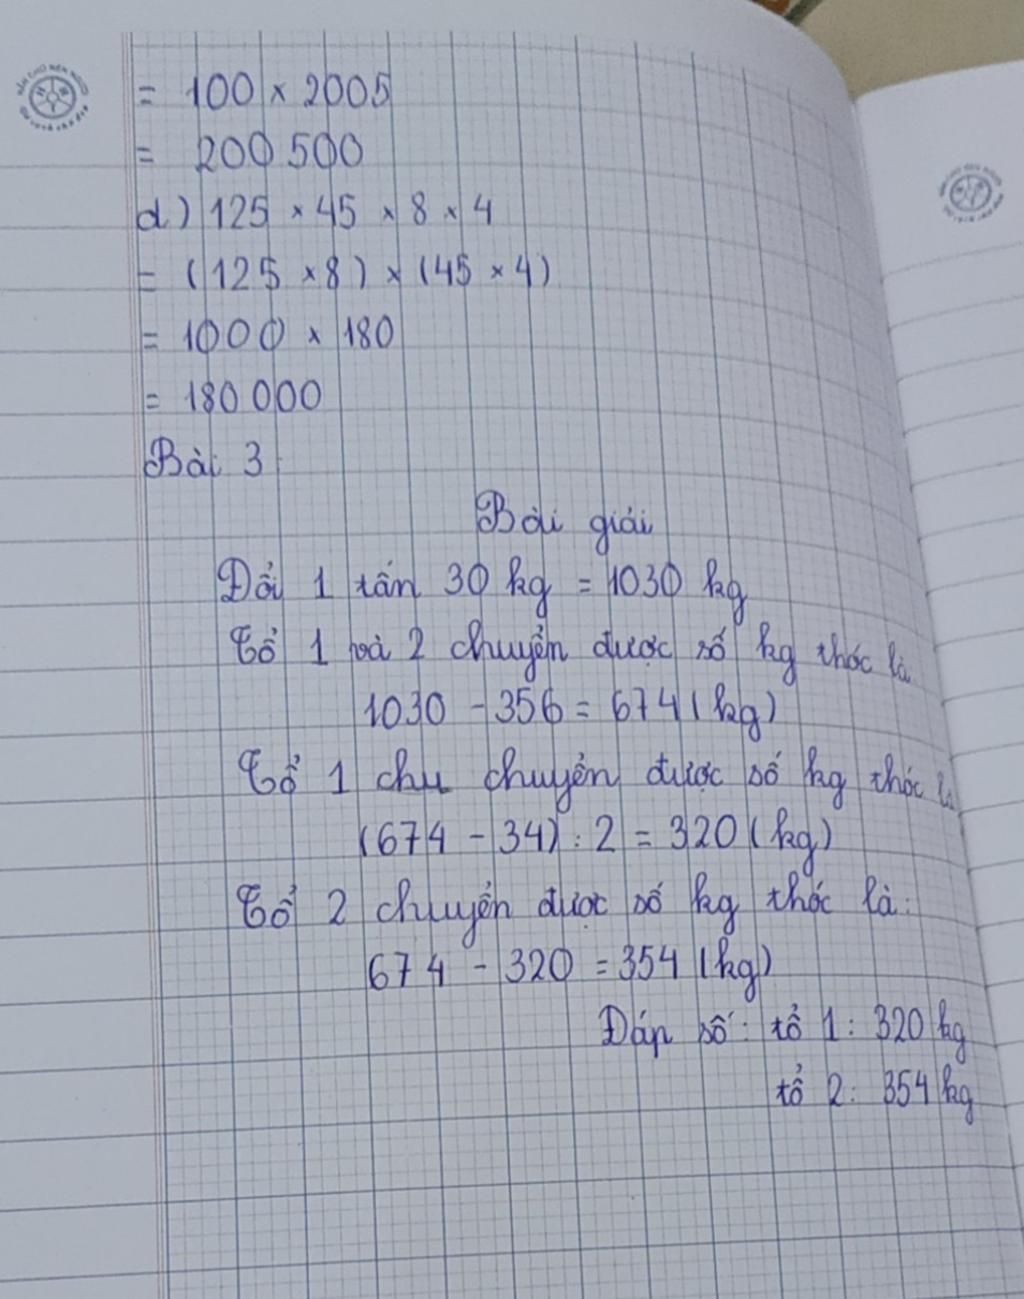 = 100 × 2005
= 200 500
d) 125 × 45 × 8 × 4
= (125 × 8) × (45 × 4)
= 1000 × 180
= 180 000
Bài 3
Bài giải
Đổi 1 tấn 30 kg = 1030 kg
Tổ 1 và 2 chuyển được số kg thóc là
1030 - 356 = 674 (kg)
Tổ 1 chu chuyển được số kg thóc là
(674 - 34) : 2 = 320 (kg)
Tổ 2 chuyển được số kg thóc là:
674 - 320 = 354 (kg)
Đáp số: tổ 1: 320 kg
tổ 2: 354 kg